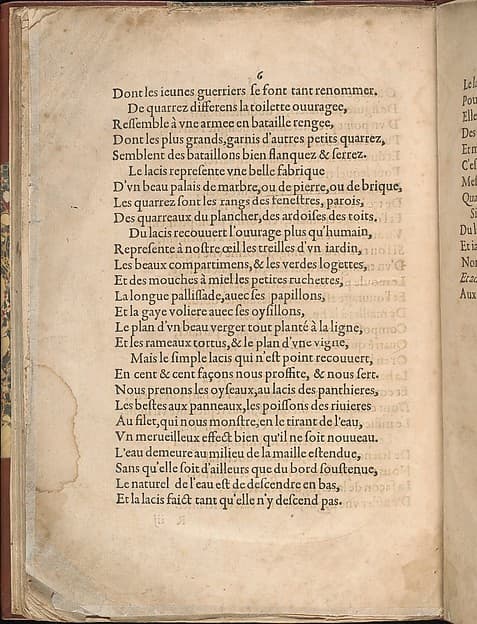 6
Dont les ieunes guerriers se font tant renommer.
De quarrez differens la toilette ouuragee,
Ressemble à vne armee en bataille rengee,
Dont les plus grands, garnis d'autres petits quarrez,
Semblent des bataillons bien flanquez & serrez.
Le lacis represente vne belle fabrique
D'vn beau palais de marbre, ou de pierre, ou de brique,
Les quarrez sont les rangs des fenestres, parois,
Des quarreaux du plancher, des ardoises des toits.
Du lacis recouuert l'ouurage plus qu'humain,
Represente à nostre œil les treilles d'vn iardin,
Les beaux compartimens, & les verdes logettes,
Et des mouches à miel les petites ruchettes,
La longue pallissade, auec ses papillons,
Et la gaye voliere auec ses oysillons,
Le plan d'vn beau verger tout planté à la ligne,
Et les rameaux tortus, & le plan d'vne vigne,
Mais le simple lacis qui n'est point recouuert,
En cent & cent façons nous proffite, & nous sert.
Nous prenons les oyseaux, au lacis des panthieres,
Les bestes aux panneaux, les poissons des riuieres
Au filet, qui nous monstre, en le tirant de l'eau,
Vn merueilleux effect bien qu'il ne soit nouueau.
L'eau demeure au milieu de la maille estendue,
Sans qu'elle soit d'ailleurs que du bord soustenue,
Le naturel de l'eau est de descendre en bas,
Et la lacis faict tant qu'elle n'y descend pas.
Pou
Elle
Des
Si
Aux